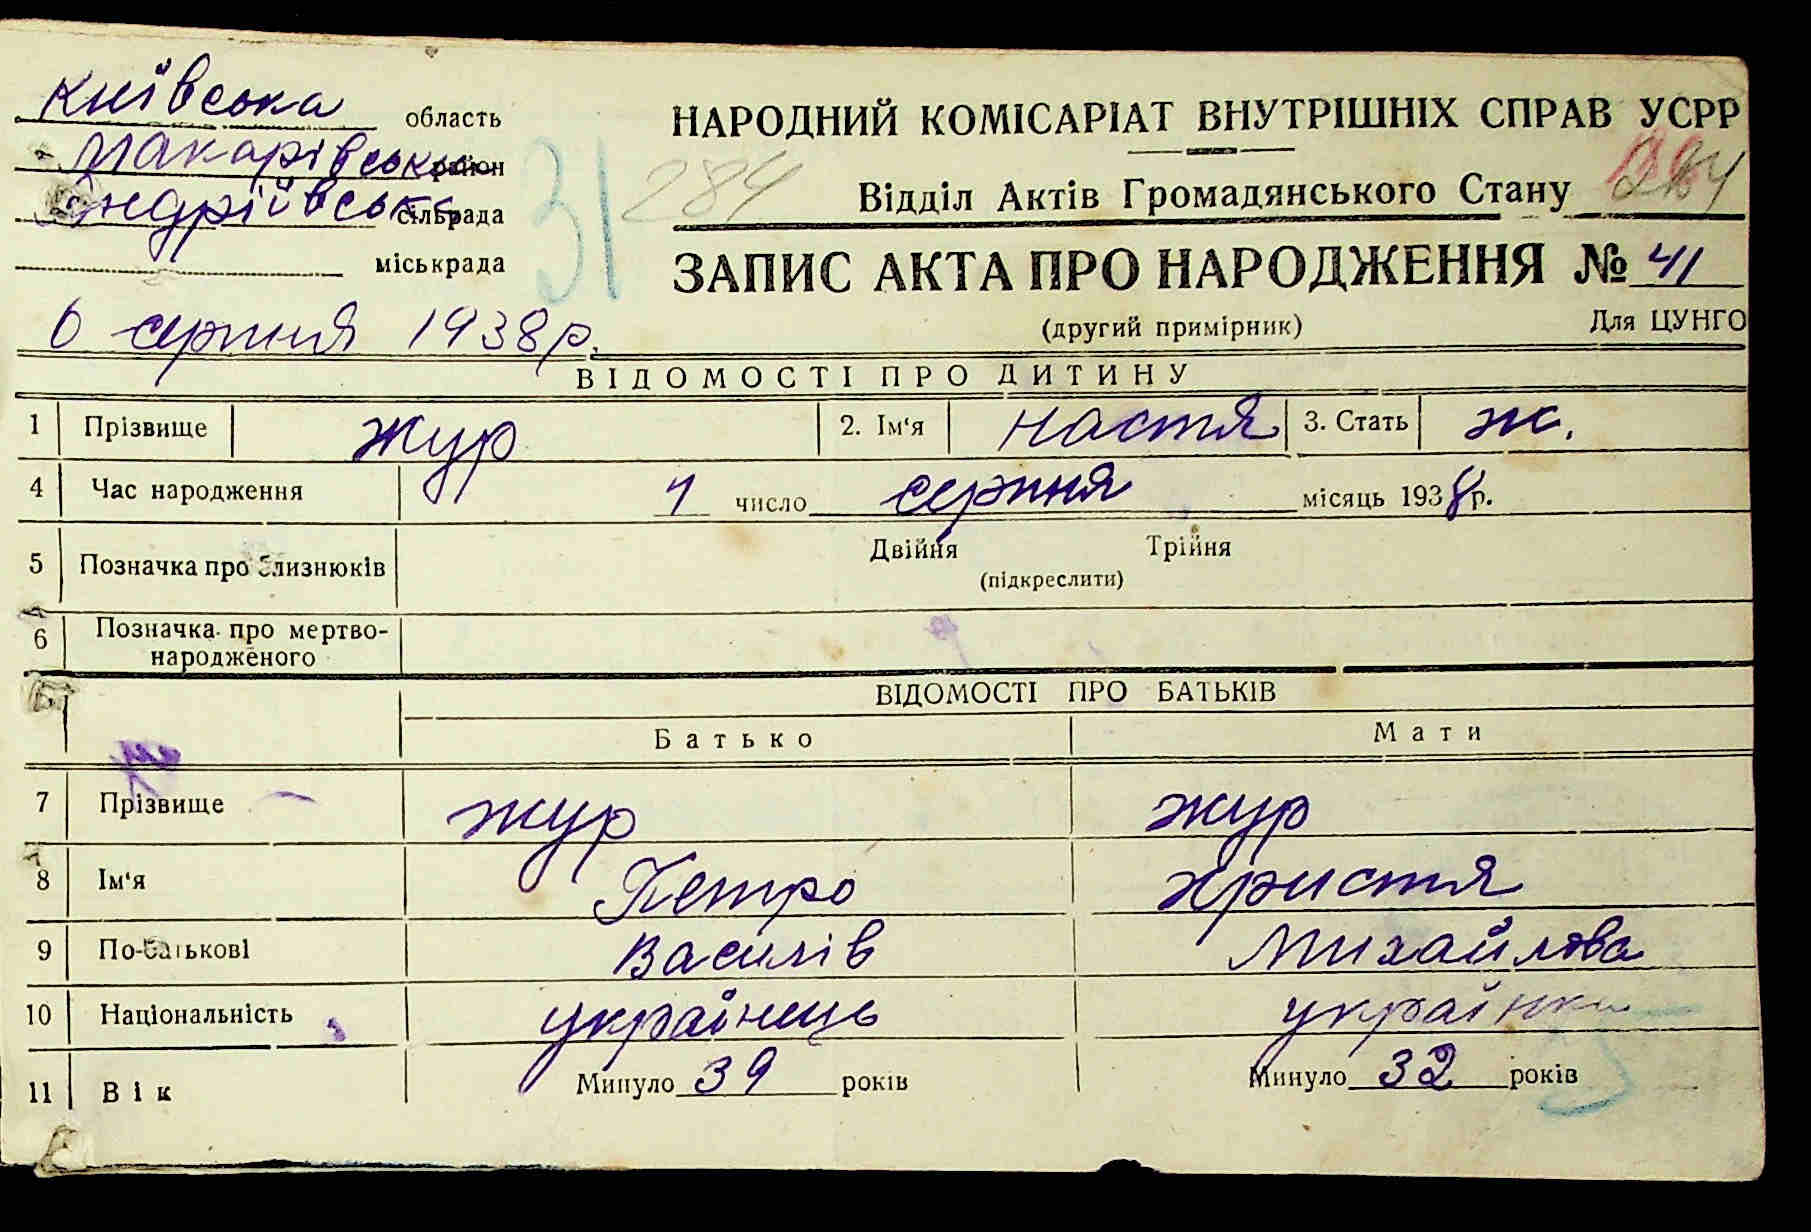 Київська область
Макарівська район
Андріївська сільрада
міськрада
31
284
НАРОДНИЙ КОМІСАРІАТ ВНУТРІШНІХ СПРАВ УСРР
Відділ Актів Громадянського Стану
ЗАПИС АКТА ПРО НАРОДЖЕННЯ № 41
6 серпня 1938 р.
(другий примірник) Для ЦУНГО
ВІДОМОСТІ ПРО ДИТИНУ
1 Прізвище Жур 2. Ім'я Настя 3. Стать ж.
4 Час народження 1 число серпня місяць 1938 р.
5 Позначка про близнюків Двійня Трійня
(підкреслити)
6 Позначка про мертво-
народженого
ВІДОМОСТІ ПРО БАТЬКІВ
Батько Мати
7 Прізвище Жур Жур
8 Ім'я Петро Христя
9 По-батькові Василів Михайлова
10 Національність українець українка
11 Вік Минуло 39 років Минуло 32 років